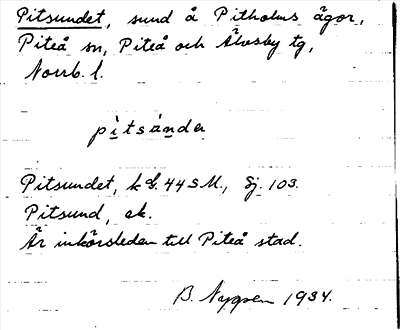 Pitsundet, sund å Pitholms ägor,
Piteå sn, Piteå och Älvsby tg,
Norrb. l.
pìtsánda
Pitsundet, k bl. 44 S.M., Sj. 103.
Pitsund, ek.
Är inkörsleden till Piteå stad.
B. 1934.